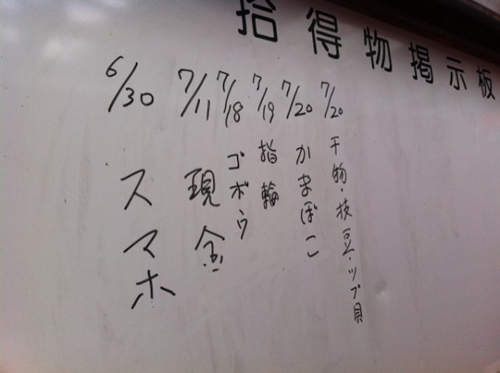 拾得物掲示板
6/30 スマホ
7/11 現金
7/18 ゴボウ
7/19 指輪
7/20 かまぼこ
7/20 干物・枝豆・ツブ貝